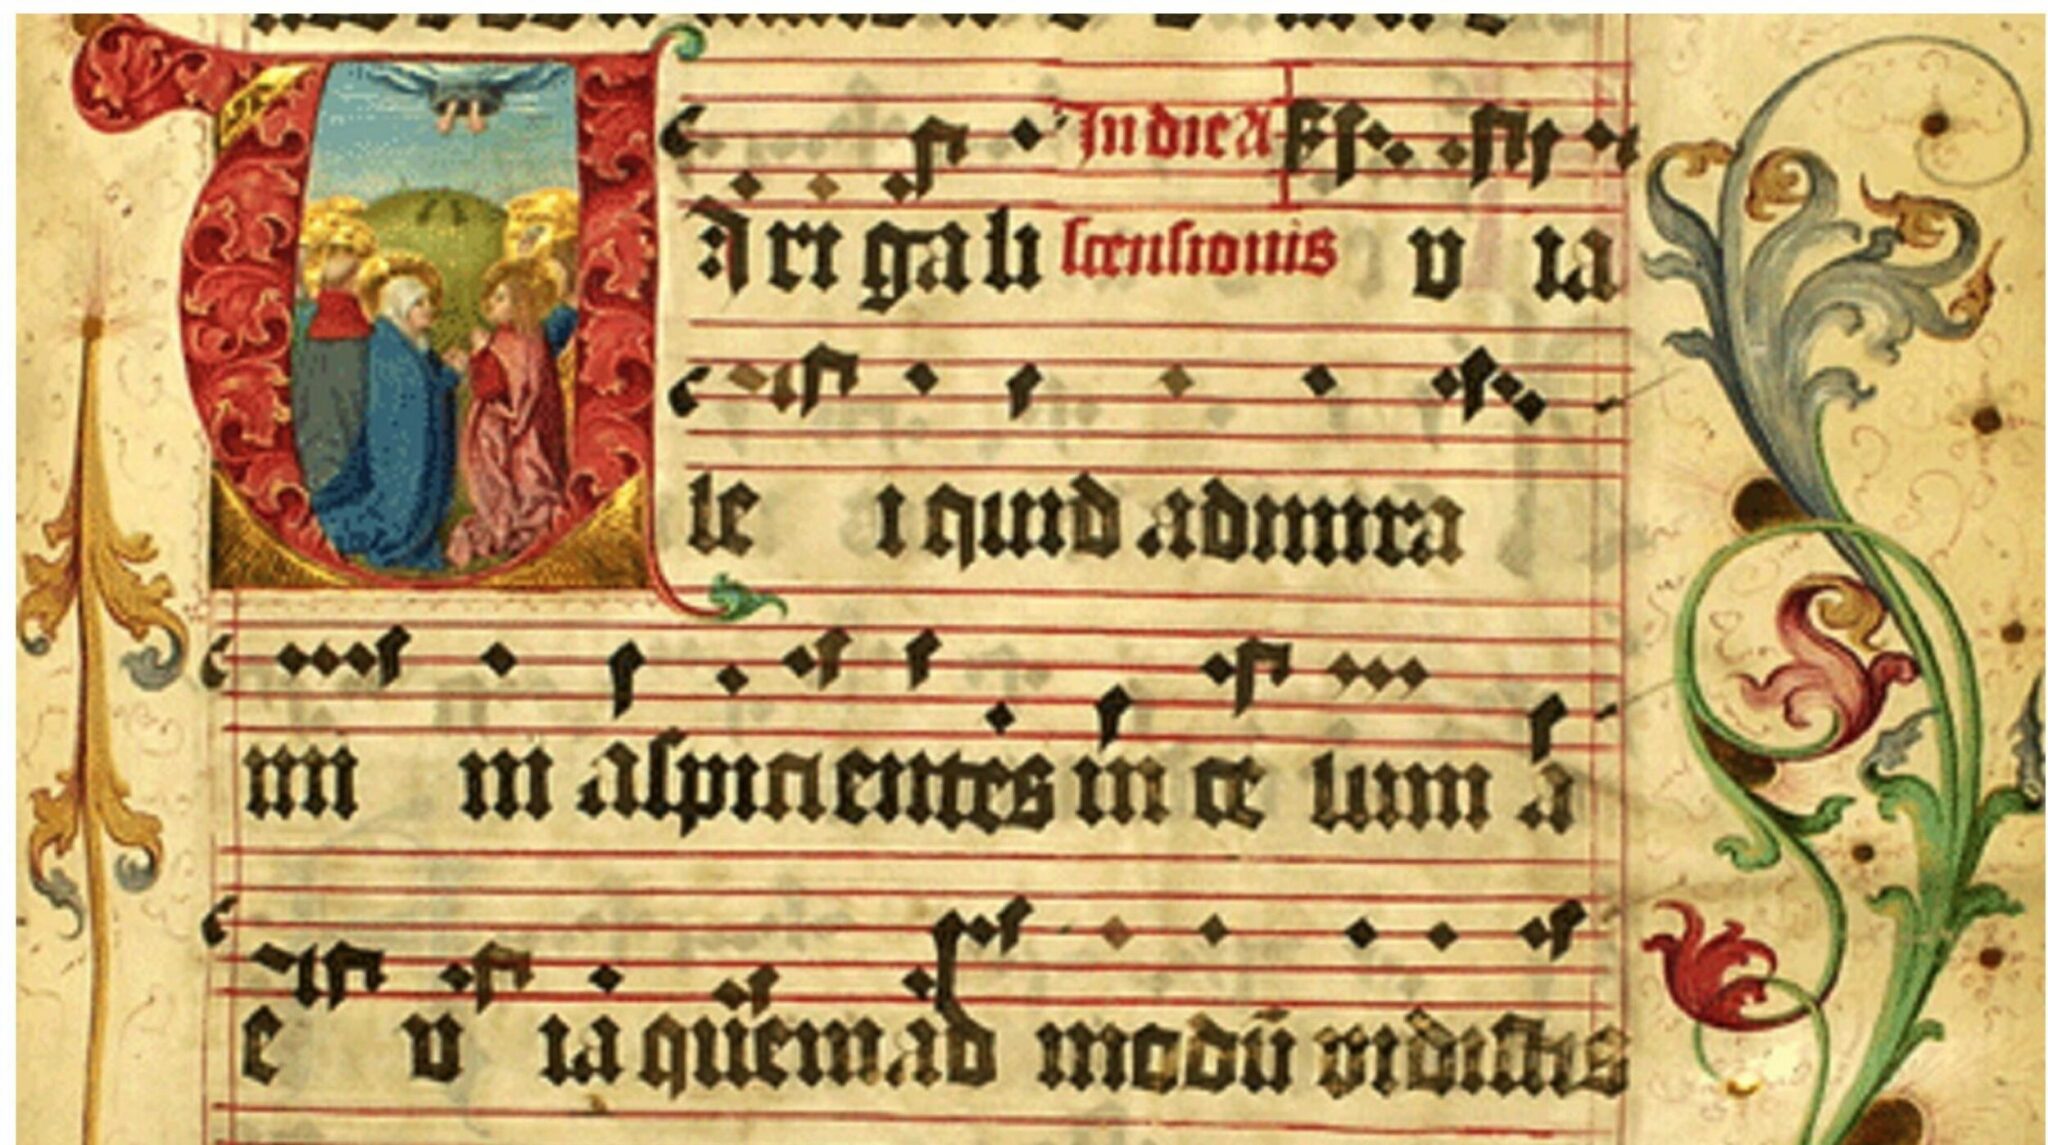 In die A
VIri gali scensionis v ia
le i quid admira
mi ni aspicientes in ce lum a
e v ia quemad modū vidistis